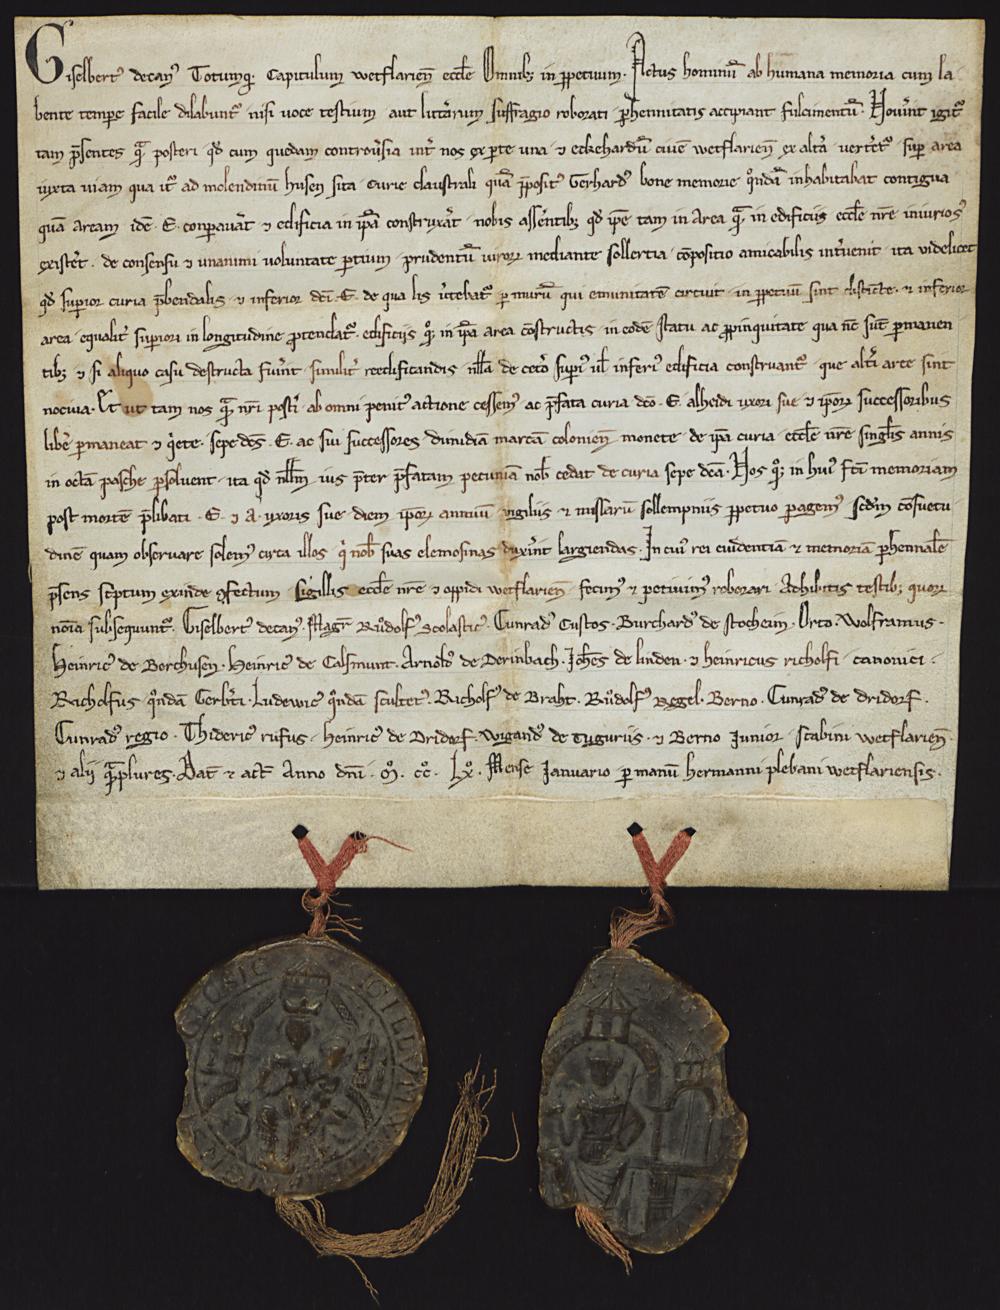 Giselbert᾽ decan᾽ Totumq; Capitulum wetflarien̄ eccl̄e Omnib; in ꝑpetuum. Actus hominū ab humana memoria cum la
bente tempe facile dilabunt᷑ nisi uoce testium aut litt̄arum suffragio roborati ꝑhennitatis accipiant fulcimentū. Nouint igit᷑
tam p̄sentes q̄ᵃ posteri qd̄ cum quedam controūsia int̄ nos ex ꝑte una ⁊ eckehardū ciuē wetflarien̄ ex altā uertet᷑ suꝑ area
iuxta uiam qua it᷑ ad molendinū husen sita curie claustrali quā p̄posit᾽ Gerhard᾽ bone memorie qͦndā inhabitabat contigua
quā aream idē .E. conparauāt ⁊ edificia in ip̄a construxāt nobis assentib; qd̄ ip̄e tam in area q̄ᵃ in edificiis eccl̄e nr̄e iniurios᾽
existēt. de consensu ⁊ unanimi uoluntate ꝑtium prudentū uirorꝝ mediante sollertia cōpositio amicabilis intuenit ita uidelicet
qd̄ suꝑior curia p̄bendalis ⁊ inferior dc̄i .E. de qua lis ūtebat᷑ ꝑ murū qui emunitatē circuit in ꝑpetuū sint disticte. ⁊ inferior
area equalit̄ suꝑiori in longitudine ꝓtendat᷑. edificijs qͦ; in ip̄a area cōstructis in eodē statu ac ꝓpinquitate qua nc̄ sūt ꝑmanen
tib; ⁊ si aliquo casu destructa fuint similit̄ reedificandis nll̄a de cetō supi ul̄ inferi᾽ edificia construant᷑ que alti aree sint
nociua. Et ut tam nos q̄ᵃ nr̄i postī ab omni penit᾽ actione cessem᾽ ac p̄fata curia dc̄o .E. alheidi uxori sue ⁊ ipoꝝ successoribus
libē ꝑmaneat ⁊ qͥete. sepe dc̄s .E. ac sui successores dimidiā marcā colonien̄ monete de ip̄a curia eccl̄e nr̄e singl̄is annis
in octā pasche ꝑsoluent ita qd̄ nll̄m ius p̄ter p̄fatam pecuniā nob̄ cedat de curia sepe dc̄a. Nos qͦ; in hui᾽ fc̄i memoriam
post mortē p̄libati .E. ⁊ .A. uxoris sue diem ipoꝝ anniuū uigiliis ⁊ missarū sollempniis ꝑpetuo ꝑagem᾽ scd̄m cōsuetu
dinē quam obseruare solem᾽ circa illos qͥ nob̄ suas elemosinas duxīnt largiendas. In cui᾽ rei euidentiā ⁊ memoriā ꝑhennalē
p̄sens scͥptum exinde ꝯfectum sigillis eccl̄e nr̄e ⁊ oppidi wetflarien̄ fecim᾽ ⁊ petiuim᾽ roborari. Adhibitis testib; quorꝝ
noīa subsequunt᷑. Giselbert᾽ decan᾽. Magr̄ Rudolf᾽ Scolastic᾽. Cunrad᾽ Custos. Burchard᾽ de stocheim. Orto. Wolframus.
Heinric᾽ de Borchusen. Heinric᾽ de Calsmunt. Arnold᾽ de Derinbach. Joh̄es de linden. ⁊ heinricus richolfi canonici.
Richolfus qͦndā Gerb̄ti. Ludewic᾽ qͦndā scultet᾽. Richolf᾽ de Braht. Rudolf᾽ Regel. Berno. Cunrad᾽ de dridorf.
Cunrad᾽ regio. Thideric᾽ rufus. heinric᾽ de Dridorf. Wigand᾽ de tuguriis. ⁊ Berno Iunior. scabini wetflarien̄.
⁊ alij q̄ᵃplures. Dat̄ ⁊ act̄ Anno dn̄i .Mͦ. CCͦ. LXͦ. Mense Ianuario ꝑ manū hermanni plebani wetflariensis.